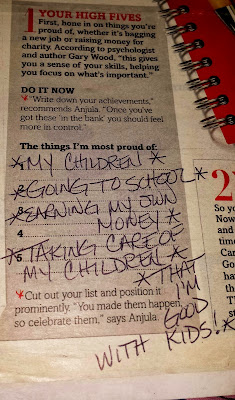 1 YOUR HIGH FIVES
First, hone in on things you're
proud of, whether it's bagging
a new job or raising money for
charity. According to psychologist
and author Gary Wood, "this gives
you a sense of your skills, helping
you focus on what's important."
DO IT NOW
"Write down your achievements,"
recommends Anjula. "Once you've
got these 'in the bank' you should
feel more in control."
The things I'm most proud of:
1 *MY CHILDREN*
2 *GOING TO SCHOOL*
3 *EARNING MY OWN
4 MONEY*
5 *TAKING CARE OF
MY CHILDREN*
*THAT
I'M
GOOD
WITH KIDS!*
Cut out your list and position it
prominently. "You made them happen,
so celebrate them," says Anjula.
2
So yo
Now
and
time
Car
Go
ha
the
T
st